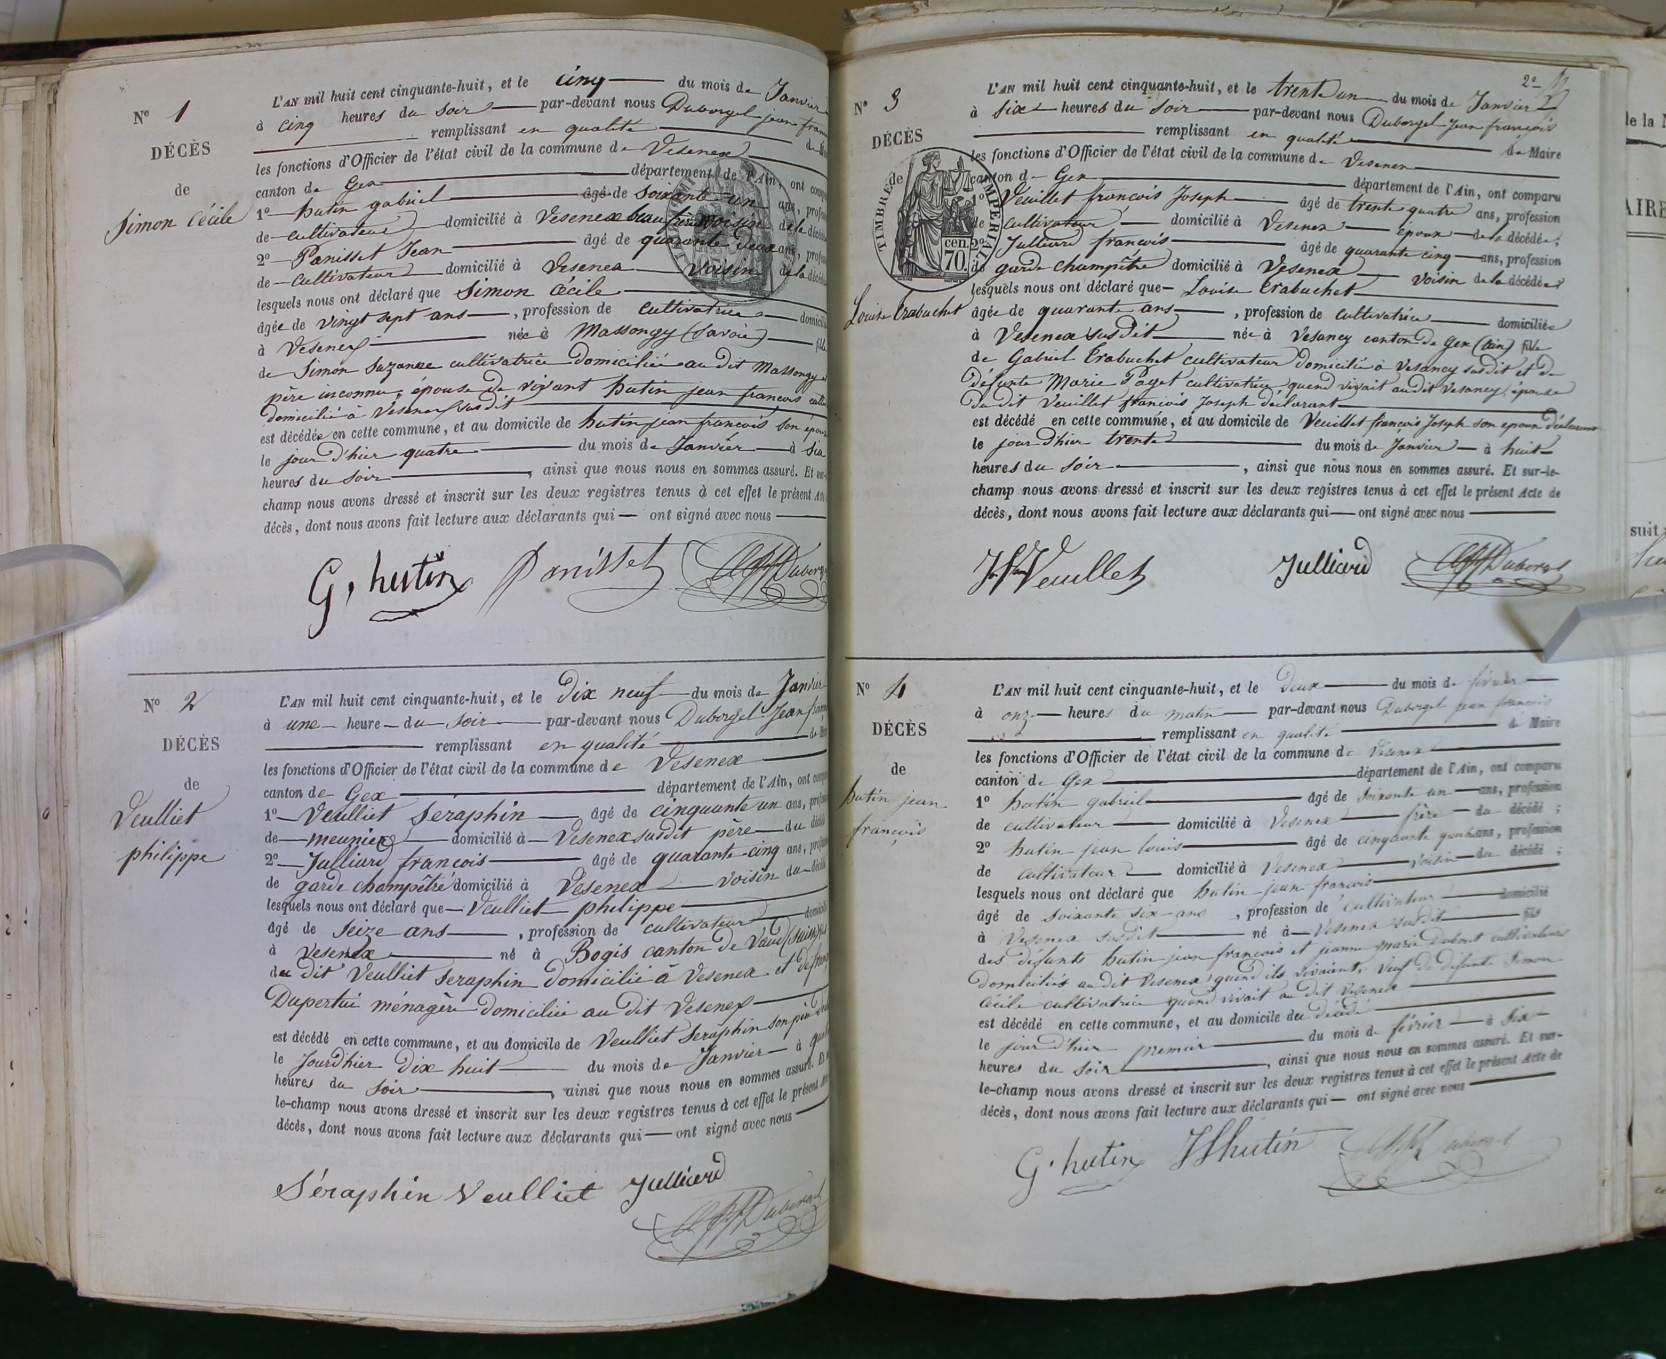 N° 1
DÉCÈS
de
Simon Cécile
L'AN mil huit cent cinquante-huit, et le cinq du mois de Janvier
à cinq heures du soir par-devant nous Duborgel jean
remplissant en qualité
les fonctions d'Officier de l'état civil de la commune de Vesenex
canton de Gex département de l'Ain, ont
1° hutin gabriel âgé de soixante un ans,
de cultivateur domicilié à Vesenex voisin de la
2° Panisset Jean âgé de quarante deux ans,
de cultivateur domicilié à Vesenex voisin de la
lesquels nous ont déclaré que Simon Cécile
âgée de vingt sept ans, profession de cultivatrice
à Vesenex née à Massongy (Savoie)
de Simon Suzanne cultivatrice domiciliée au dit Massongy
père inconnu, épouse de vivant hutin jean françois
domicilié à Vesenex susdit
est décédée en cette commune, et au domicile de hutin jean françois son
le jour d'hier quatre du mois de Janvier à six
heures du soir, ainsi que nous nous en sommes assuré. Et sur-
champ nous avons dressé et inscrit sur les deux registres tenus à cet effet le présent
décès, dont nous avons fait lecture aux déclarants qui ont signé avec nous
G. hutin Panisset Duborgel
N° 2
DÉCÈS
de
Veulliet
philippe
L'AN mil huit cent cinquante-huit, et le Dix neuf du mois de Janvier
à une heure du soir par-devant nous Duborgel Jean
remplissant en qualité
les fonctions d'Officier de l'état civil de la commune de Vesenex
canton de Gex département de l'Ain, ont
1° Veulliet Séraphin âgé de cinquante un ans,
de meunier domicilié à Vesenex susdit père du
2° Julliard françois âgé de quarante cinq ans,
de garde champêtre domicilié à Vesenex voisin du
lesquels nous ont déclaré que Veulliet philippe
âgé de Seize ans, profession de cultivateur
à Vesenex né à Bogis canton de Vaud
du dit Veulliet Seraphin domicilié à Vesenex et de
Dupertui ménagère domiciliée au dit Vesenex
est décédé en cette commune, et au domicile de Veulliet Seraphin son père
le jourdhier Dix huit du mois de Janvier à
heures du soir, ainsi que nous nous en sommes assuré.
le-champ nous avons dressé et inscrit sur les deux registres tenus à cet effet le présent
décès, dont nous avons fait lecture aux déclarants qui ont signé avec nous
Séraphin Veulliet Julliard
Duborgel
2e
N° 3
DÉCÈS
de
Louise Trabuchet
TIMBRE IMPERIAL
70 cen.
L'AN mil huit cent cinquante-huit, et le trente un du mois de Janvier
à six heures du soir par-devant nous Duborgel Jean françois
remplissant en qualité de Maire
les fonctions d'Officier de l'état civil de la commune de Vesenex
canton de Gex département de l'Ain, ont comparu
1° Veuillet françois Joseph âgé de trente quatre ans, profession
de cultivateur domicilié à Vesenex époux de la décédée;
2° Julliard françois âgé de quarante cinq ans, profession
de garde champêtre domicilié à Vesenex voisin de la décédée;
lesquels nous ont déclaré que Louise Trabuchet
âgée de quarante ans, profession de cultivatrice domiciliée
à Vesenex susdit née à Vesancy canton de Gex (Ain) fille
de Gabriel Trabuchet cultivateur domicilié à Vesancy susdit et de
défunte Marie Paget cultivatrice quand vivait audit Vesancy, épouse
du dit Veuillet françois Joseph déclarant
est décédé en cette commune, et au domicile de Veuillet françois Joseph son époux déclarant
le jour d'hier trente du mois de Janvier à huit
heures du soir, ainsi que nous nous en sommes assuré. Et sur-le-
champ nous avons dressé et inscrit sur les deux registres tenus à cet effet le présent Acte de
décès, dont nous avons fait lecture aux déclarants qui ont signé avec nous
Veuillet Julliard Duborgel
N° 4
DÉCÈS
de
hutin jean
françois
L'AN mil huit cent cinquante-huit, et le Deux du mois de février
à onze heures du matin par-devant nous Duborgel jean françois
remplissant en qualité de Maire
les fonctions d'Officier de l'état civil de la commune de Vesenex
canton de Gex département de l'Ain, ont comparu
1° hutin gabriel âgé de soixante un ans, profession
de cultivateur domicilié à Vesenex frère du décédé;
2° hutin jean louis âgé de cinquante ans, profession
de cultivateur domicilié à Vesenex voisin du décédé;
lesquels nous ont déclaré que hutin jean françois
âgé de soixante six ans, profession de cultivateur domicilié
à Vesenex susdit né à Vesenex susdit fils
des défunts hutin jean françois et jeanne marie cultivateurs
domiciliés au dit Vesenex quand ils vivaient, Veuf de défunte Simon
Cécile cultivatrice quand vivait au dit Vesenex
est décédé en cette commune, et au domicile du décédé
le jour d'hier premier du mois de février à six
heures du soir, ainsi que nous nous en sommes assuré. Et sur-
le-champ nous avons dressé et inscrit sur les deux registres tenus à cet effet le présent Acte de
décès, dont nous avons fait lecture aux déclarants qui ont signé avec nous
G. hutin JL hutin Duborgel